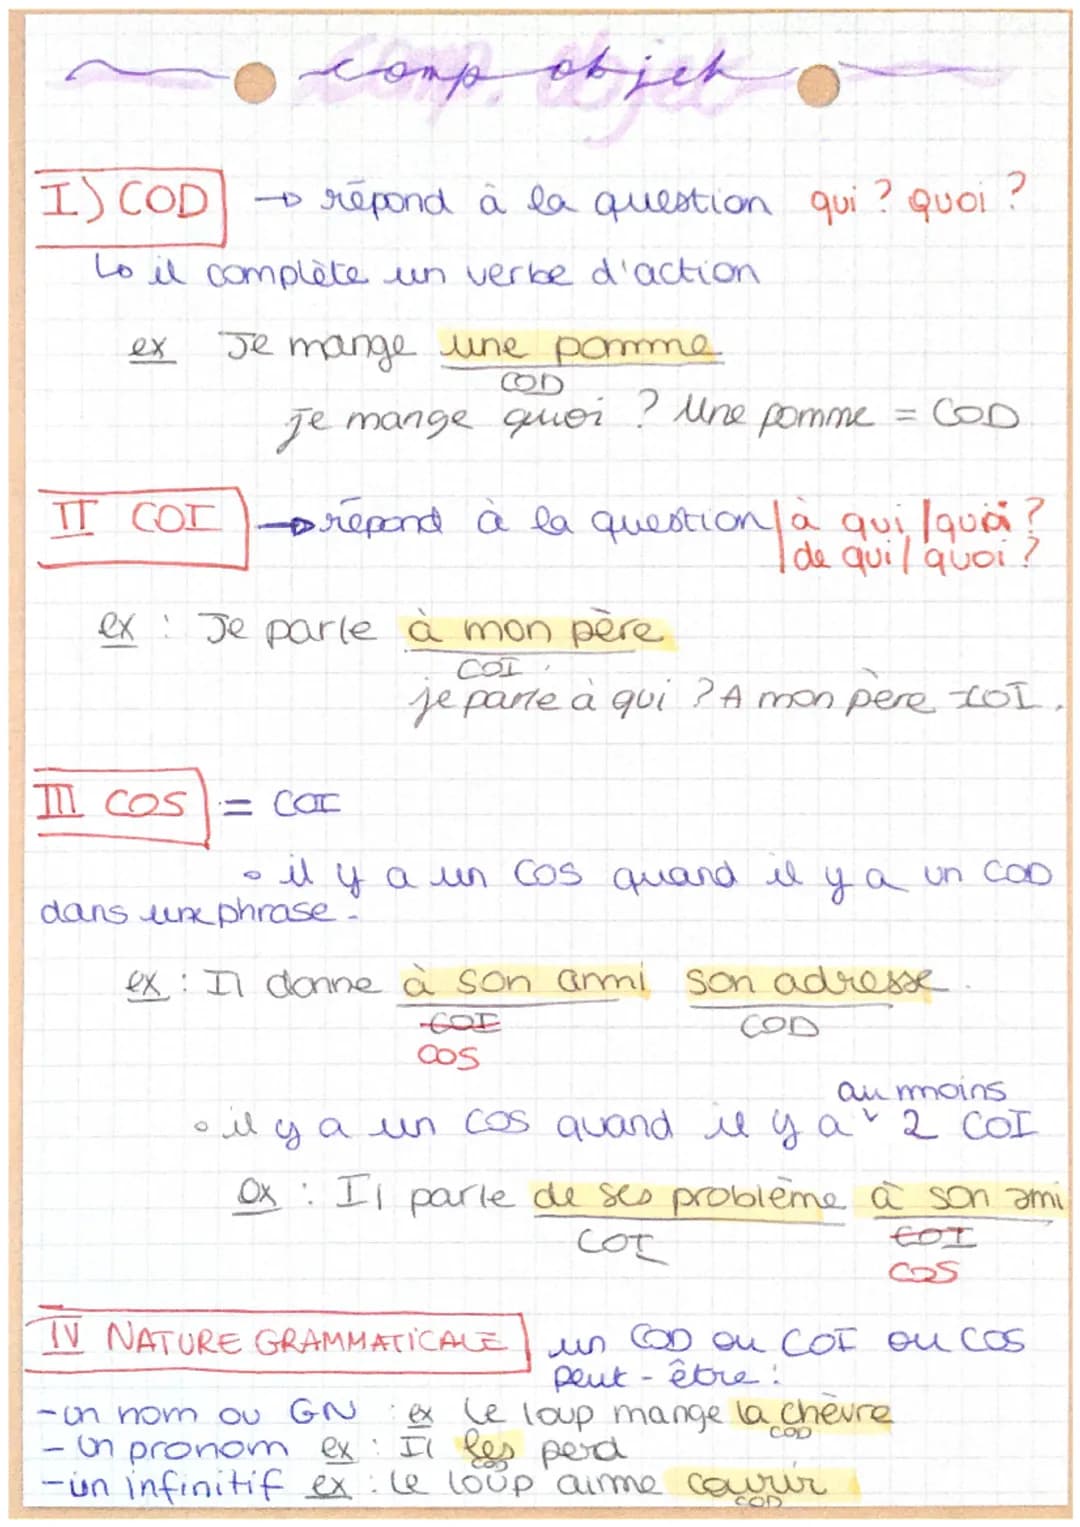 comp. objet
I) COD → répond à la question qui ? quoi ?
↳ il complète un verbe d'action
ex Je mange une pomme
COD
je mange quoi ? Une pomme = COD
II COI → répond à la question | à qui / quoi ?
| de qui / quoi ?
ex : Je parle à mon père
COI
je parle à qui ? A mon père = COI.
III COS = COI
• il y a un COS quand il y a un COD
dans une phrase.
ex : Il donne à son ami son adresse.
COI COD
COS
au moins
• il y a un COS quand il y a ˅ 2 COI
ex : Il parle de ses problème à son ami
COI COI
COS
IV NATURE GRAMMATICALE un COD ou COI ou COS
peut-être :
- un nom ou GN : ex Le loup mange la chèvre
COD
- un pronom ex : Il les perd
COD
- un infinitif ex : Le loup aime courir
COD